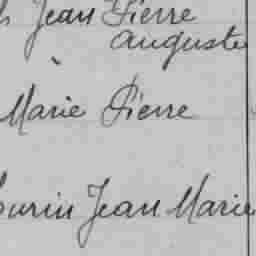 Jean Pierre
Auguste
Marie Pierre
Jean Marie